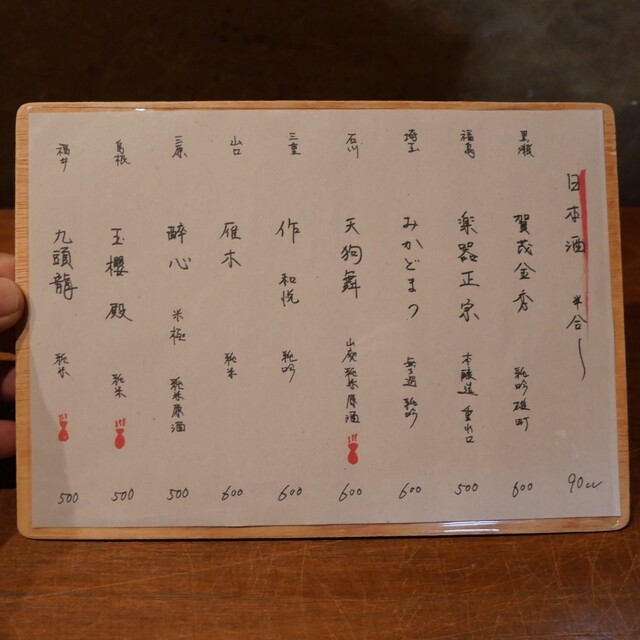 日本酒 半合〜 90cc
黒瀬 賀茂金秀 純吟 雄町 600
福島 楽器正宗 本醸造 中取り 500
埼玉 みかどまつ 無濾過 純吟 600
石川 天狗舞 山廃純米原酒 600
三重 作 和悦 純吟 600
山口 雁木 純米 600
三原 酔心 米極 純米原酒 500
島根 玉櫻 殿 純米 500
福井 九頭龍 純米 500